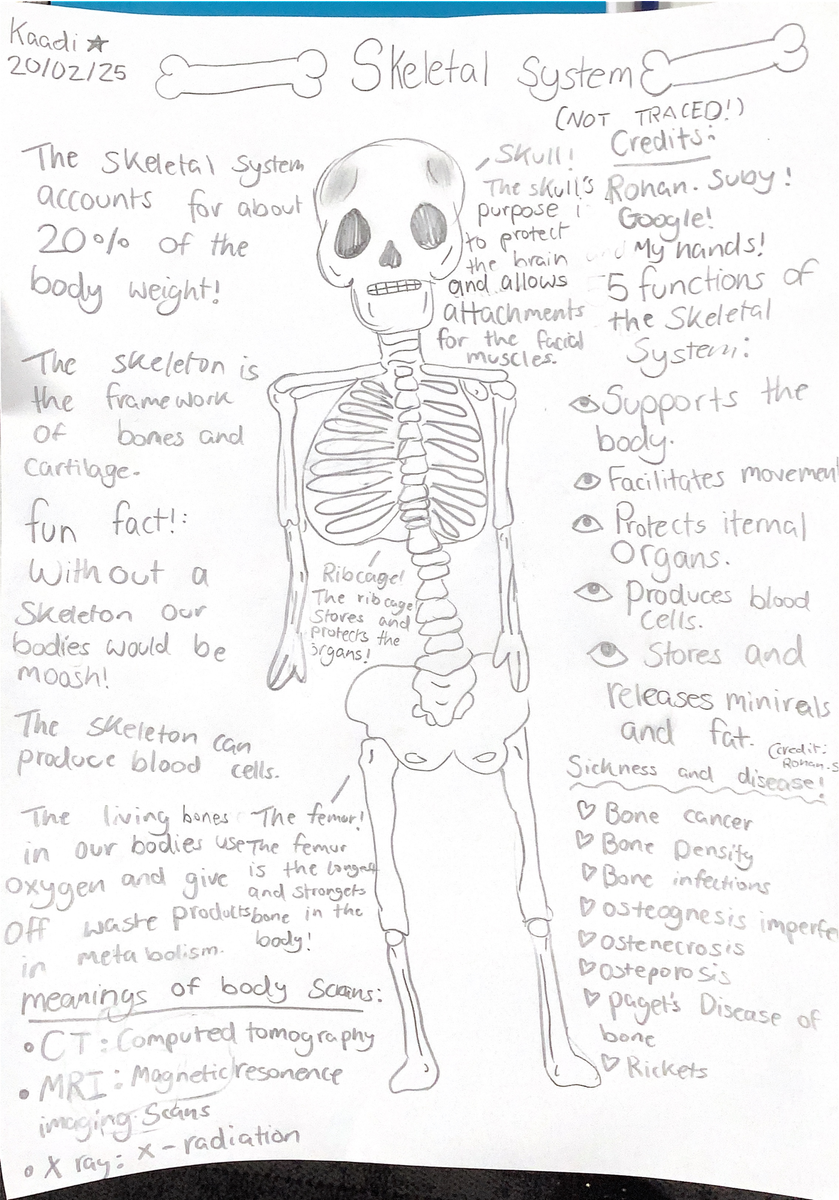 Kaadi ★
20/02/25
Skeletal System
(NOT TRACED!)
The skeletal system
accounts for about
20% of the
body weight!
The skeleton is
the framework
of bones and
cartilage.
fun fact!:
Without a
skeleton our
bodies would be
moosh!
The skeleton can
produce blood cells.
The living bones
in our bodies use
oxygen and give
off waste products
in metabolism.
meanings of body scans:
• CT: Computed tomography
• MRI: Magnetic resonence
imaging scans
• X ray: X-radiation
Skull!
The skull's
purpose i
to protect
the brain
and allows
attachments
for the facial
muscles.
Ribcage!
The ribcage
Stores and
protects the
organs!
The femur!
The femur
is the longest
and strongets
bone in the
body!
Credits:
Rohan. Suby!
Google!
My hands!
5 functions of
the Skeletal
System:
Supports the
body.
Facilitates movement
Protects iternal
Organs.
Produces blood
cells.
Stores and
releases minirals
and fat.
(credit:
Rohan.S
Sickness and disease!
♡ Bone cancer
♡ Bone Density
♡ Bone infections
♡ osteognesis imperfe
♡ ostenecrosis
♡ osteporosis
♡ paget's Disease of
bone
♡ Rickets